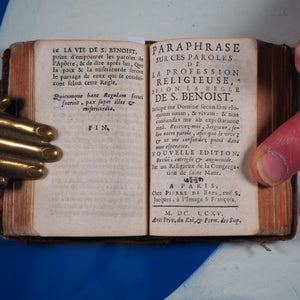 16 LA VIE DE S. BENOIST,
point d'emprunter les paroles de
l'Apôtre, & de dire après lui, Que
la paix & la misericorde seront
le partage de ceux qui se conduiront
selon cette Regle.
Quicunque hanc Regulam secuti
fuerint, pax super illos &
misericordia.
FIN.
PARAPHRASE
SUR CES PAROLES
DE
LA PROFESSION
RELIGIEUSE,
SELON LA REGLE
DE S. BENOIST.
Suscipe me Domine secundùm eloquium
tuum, & vivam: & non
confundas me ab expectatione
mea. Recevez-moi, Seigneur, selon
votre parole, afin que je vive;
& ne me confondez point dans
mon esperance.
NOUVELLE EDITION,
Revûë, corrigée & augmentée.
Par un Religieux de la Congregation
de saint Maur.
A PARIS,
Chez PIERRE DE BATS, ruë S.
Jacques, à l'Image S. François.
M. DC. CCXV.
Avec Priv. du Roi, & Perm. des Sup.